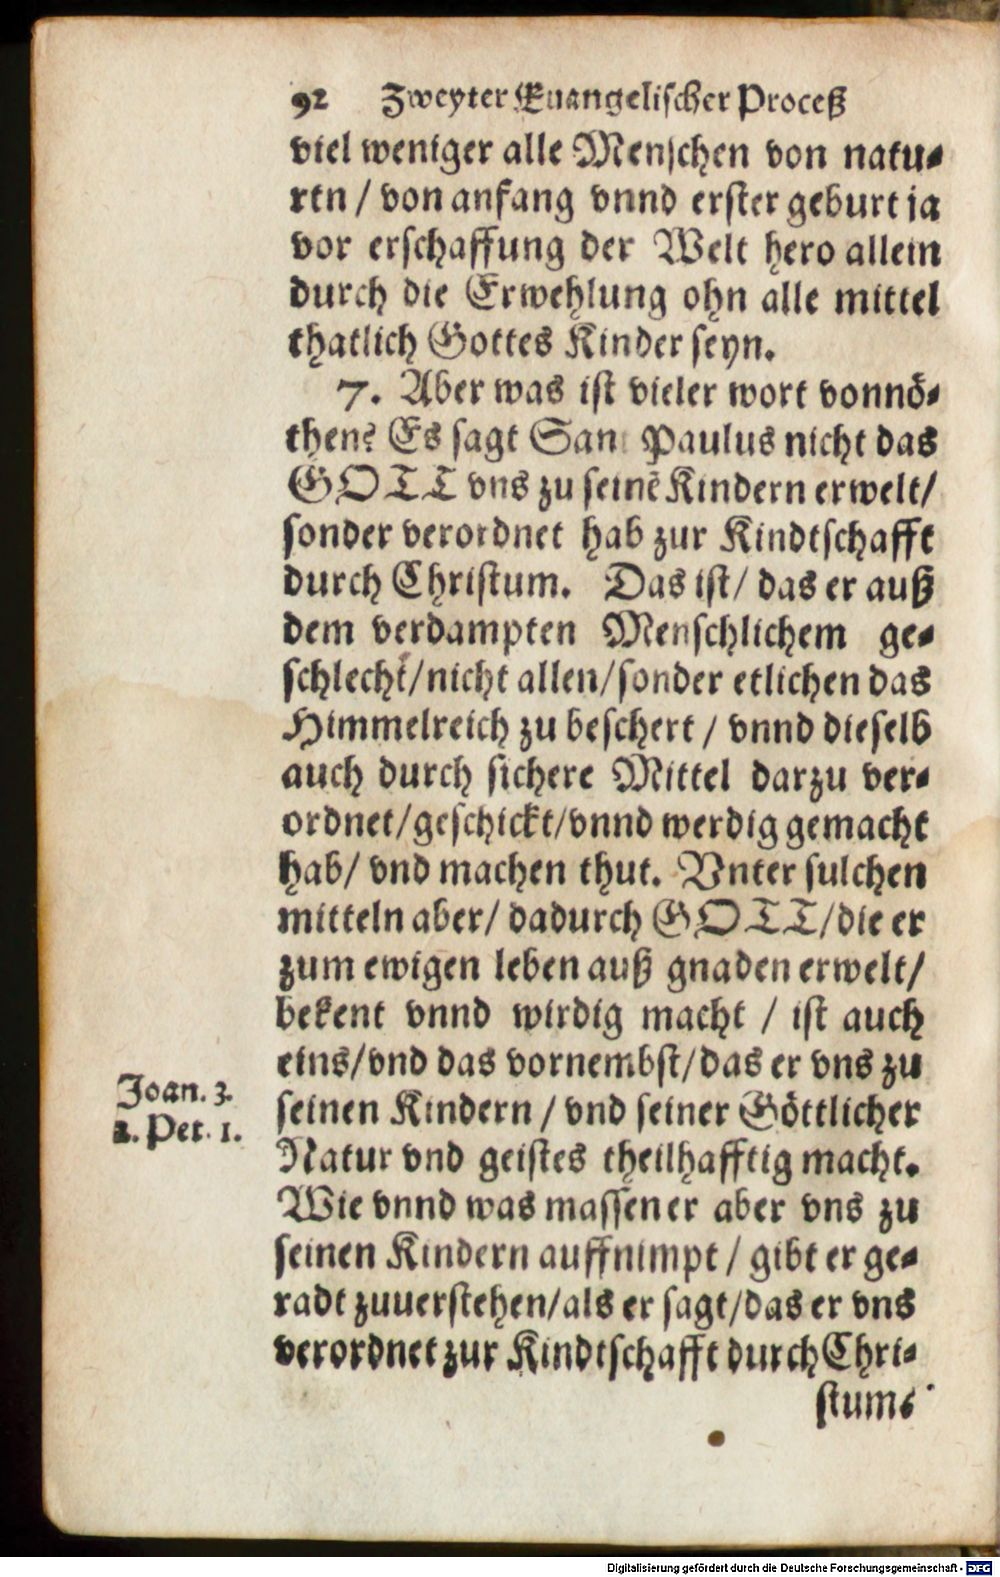 92 Zweyter Euangelischer Proceß
viel weniger alle Menschen von natu⸗
ren / von anfang vnnd erster geburt ja
vor erschaffung der Welt hero allein
durch die Erwehlung ohn alle mittel
thatlich Gottes Kinder seyn.
7. Aber was ist vieler wort vonnö⸗
then? Es sagt San Paulus nicht das
GOTT vns zu seinē Kindern erwelt/
sonder verordnet hab zur Kindtschafft
durch Christum. Das ist/ das er auß
dem verdampten Menschlichem ge⸗
schlecht/nicht allen/sonder etlichen das
Himmelreich zu beschert / vnnd dieselb
auch durch sichere Mittel darzu ver⸗
ordnet/geschickt/vnnd werdig gemacht
hab/ vnd machen thut. Vnter sulchen
mitteln aber/ dadurch GOTT/die er
zum ewigen leben auß gnaden erwelt/
bekent vnnd wirdig macht / ist auch
eins/vnd das vornembst/das er vns zu
Joan. 3.
seinen Kindern / vnd seiner Göttlicher
2. Pet. 1.
Natur vnd geistes theilhafftig macht.
Wie vnnd was massen er aber vns zu
seinen Kindern auffnimpt / gibt er ge⸗
radt zuuerstehen/als er sagt/das er vns
verordnet zur Kindtschafft durch Chri⸗
stum⸗
Digitalisierung gefördert durch die Deutsche Forschungsgemeinschaft - DFG